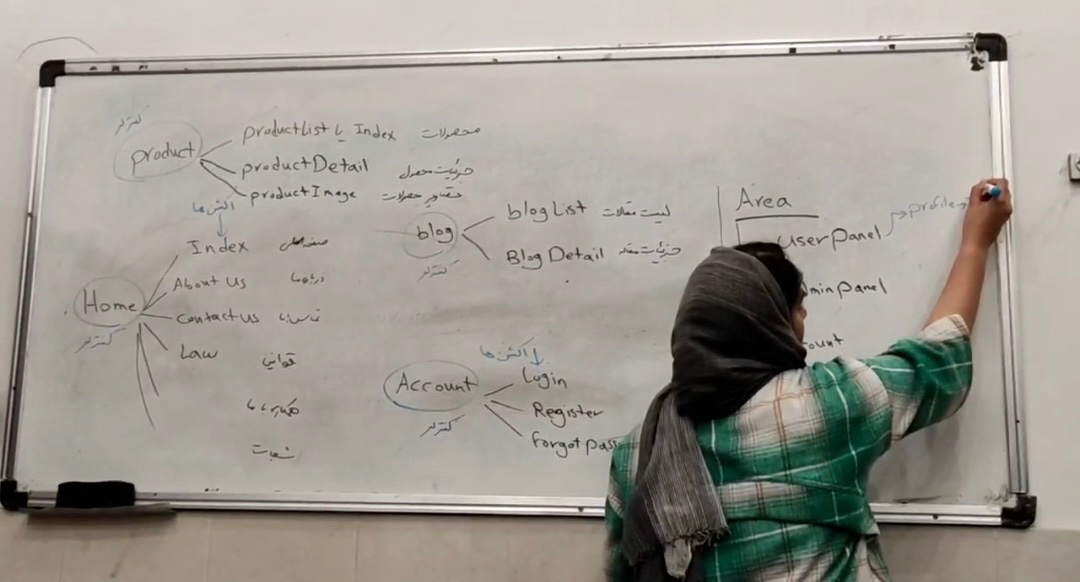 کنترلر
product
productList یا Index محصولات
productDetail جزئیات محصول
productImage تصاویر محصولات
اکشن ها
Home
کنترلر
Index صفحه اصلی
About Us درباره ما
Contact us تماس با ما
Law قوانین
همکاری با ما
شعبات
blog
کنترلر
blogList لیست مقالات
Blog Detail جزئیات مقاله
اکشن ها
Account
کنترلر
Login
Register
Forgot pass
Area
userPanel → profile
minpanel
ount